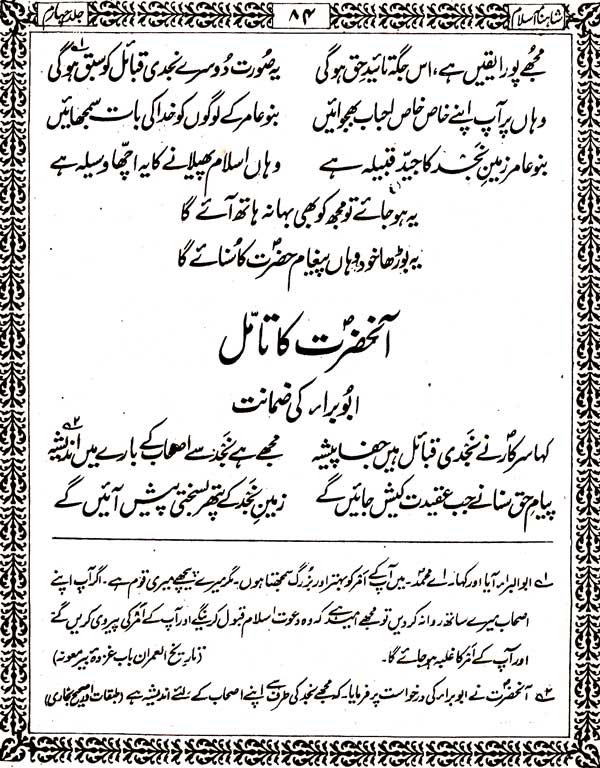 شاہنامہ اسلام ۸۴ جلد چہارم
مجھے پورا یقیں ہے، اس جگہ تائیدِ حق ہوگی یہ صورت دوسرے نجدی قبائل کو سبق ہوگی ۱؎
وہاں پر آپ اپنے خاص خاص احباب بھجوائیں بنو عامر کے لوگوں کو خدا کی بات سمجھائیں
بنو عامر زمینِ نجد کا جیّد قبیلہ ہے وہاں اسلام پھیلانے کا یہ اچھا وسیلہ ہے
یہ ہو جائے تو مجھ کو بھی بہانہ ہاتھ آئے گا
یہ بوڑھا خود وہاں پیغام حضرتؐ کا سنائے گا
آنحضرتؐ کا تامّل
ابو براء کی ضمانت
کہا سرکارؐ نے نجدی قبائل ہیں جفا پیشہ مجھے ہے نجد سے اصحاب کے بارے میں اندیشہ ۲؎
پیامِ حق سنانے جب عقیدت کیش جائیں گے زمینِ نجد کے پتھر بسختی پیش آئیں گے
۱؎ ابوالبراء آیا اور کہا اے محمدؐ۔ میں آپ کے اَمْر کو بہتر اور بزرگ سمجھتا ہوں۔ مگر میرے پیچھے میری قوم ہے۔ اگر آپ اپنے
اصحاب میرے ساتھ روانہ کر دیں تو مجھے امید ہے کہ وہ دعوت اسلام قبول کرینگے اور آپ کے اَمْر کی پیروی کریں گے
اور آپ کے اَمْر کا غلبہ ہو جائے گا۔ (تاریخ العمران باب غزوۂ بیر معونہ)
۲؎ آنحضرتؐ نے ابو براء کی درخواست پر فرمایا۔ کہ مجھے نجد کی طرف سے اپنے اصحاب کے لئے اندیشہ ہے (طبقات اور صحیح بخاری)